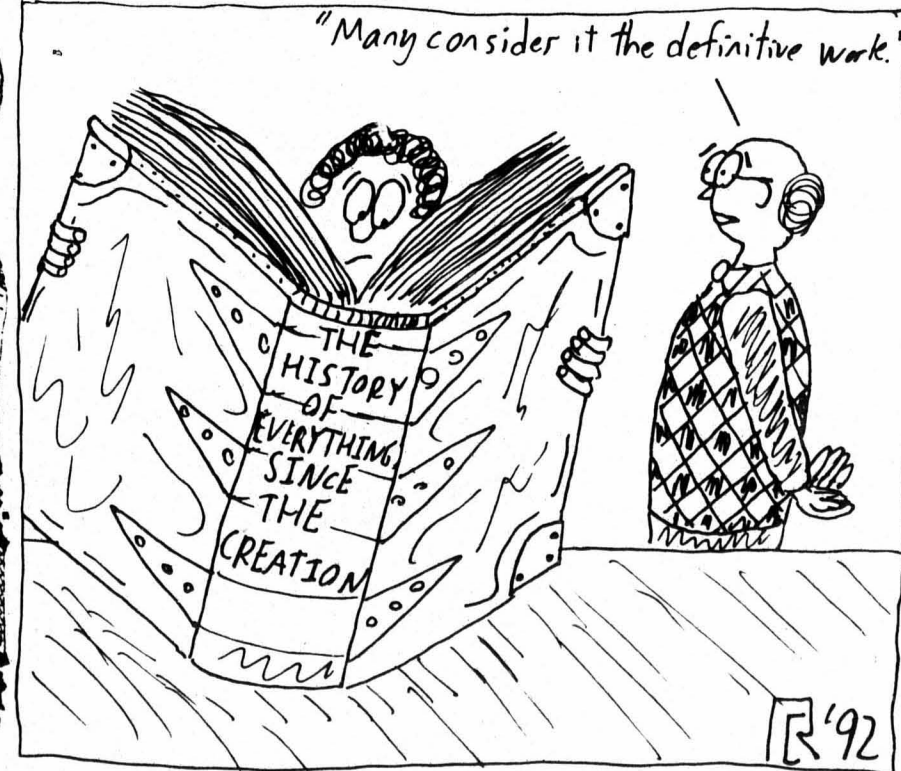 "Many consider it the definitive work."
THE
HISTORY
OF
EVERYTHING
SINCE
THE
CREATION
'92